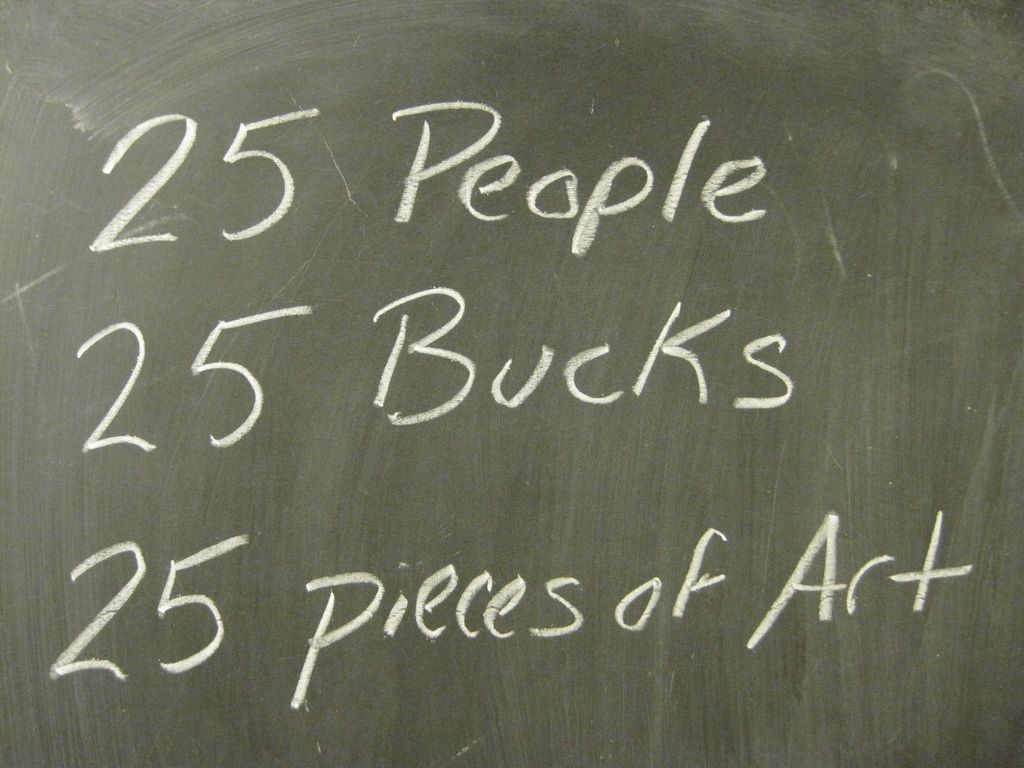 25 People
25 Bucks
25 pieces of Art